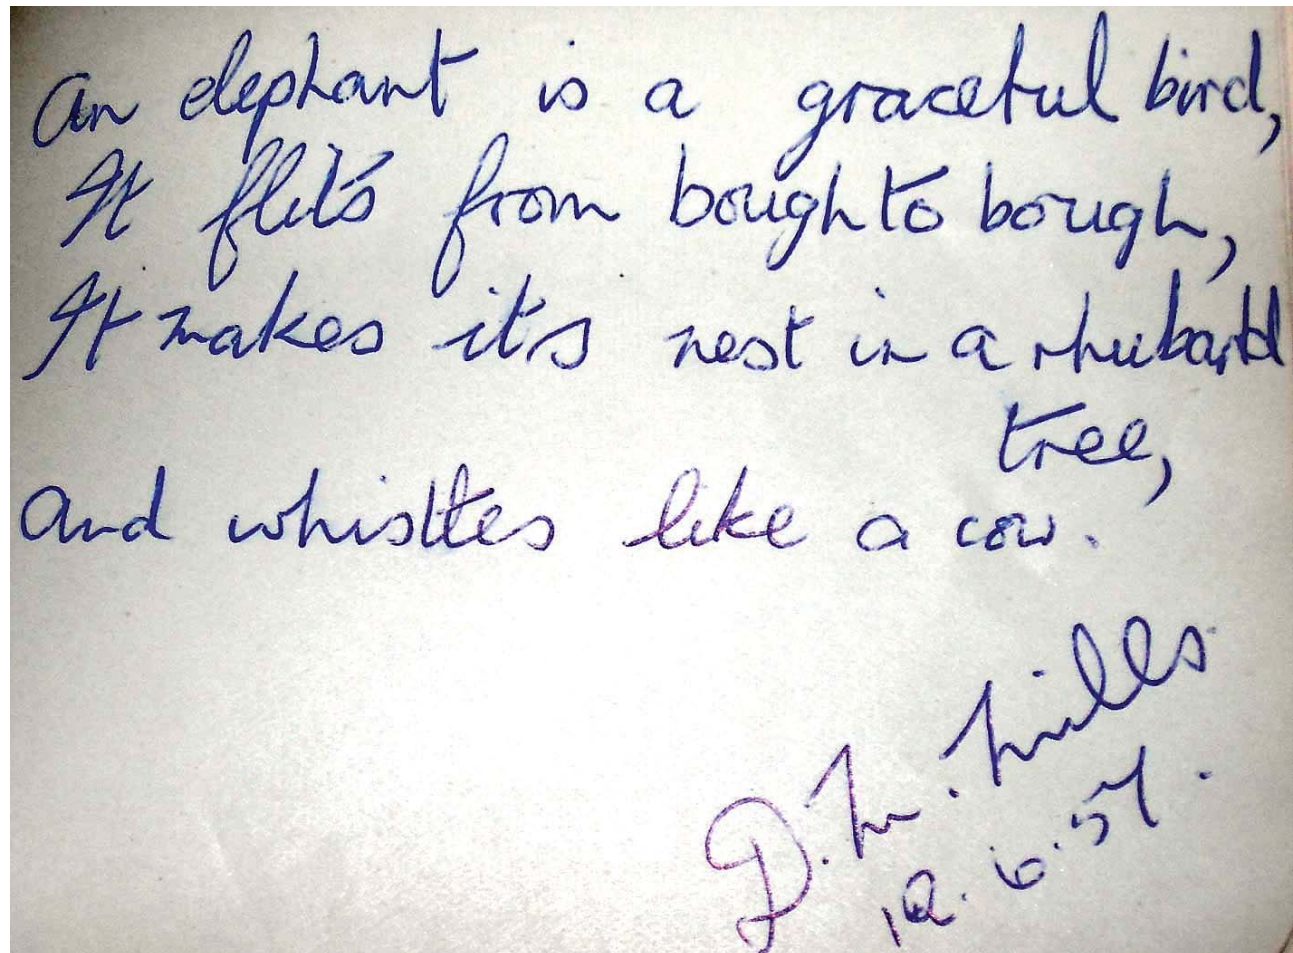 An elephant is a graceful bird,
It flits from bough to bough,
It makes it's nest in a rhubarb
tree,
And whistles like a cow.
D. M. Mills
12.6.57.